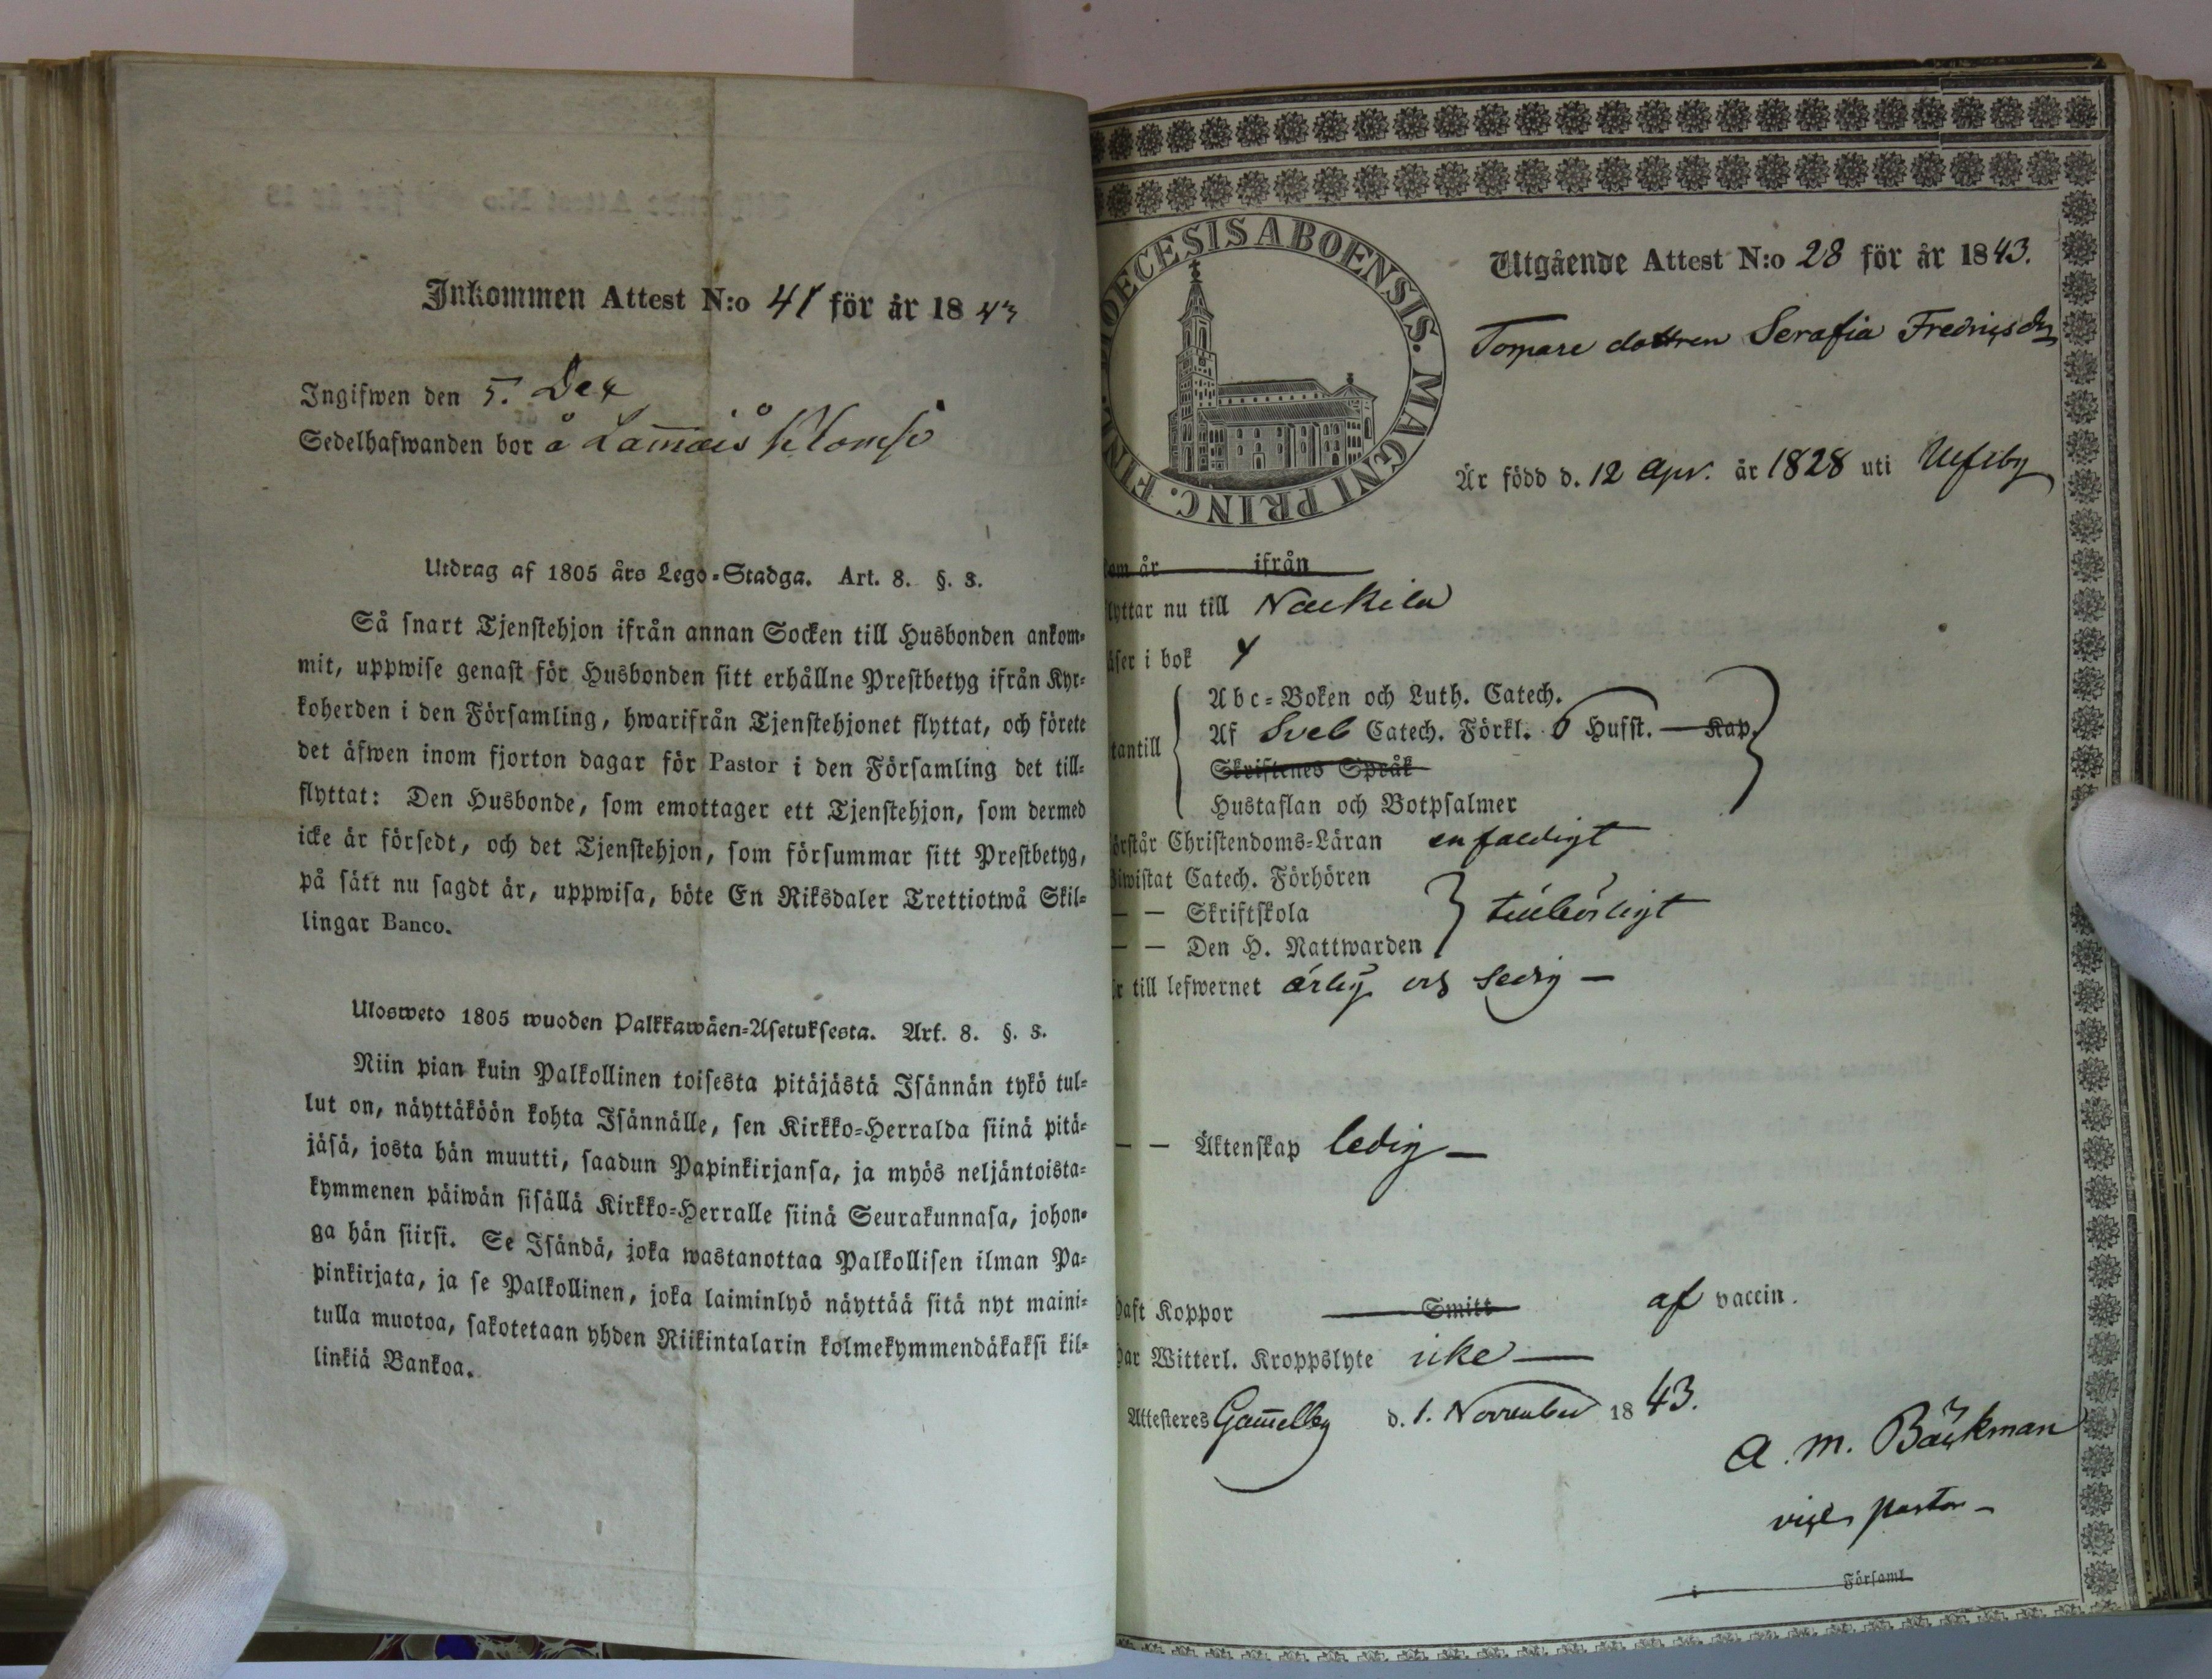 Inkommen Attest N:o 41 för år 1843
Ingifwen den 5. Dec
Sedelhafwanden bor å
Utdrag af 1805 års Lego-Stadga. Art. 8. §. 3.
Så snart Tjenstehjon ifrån annan Socken till Husbonden ankom-
mit, uppwise genast för Husbonden sitt erhållne Prestbetyg ifrån Kyr-
koherden i den Församling, hwarifrån Tjenstehjonet flyttat, och förete
det äfwen inom fjorton dagar för Pastor i den Församling det till-
flyttat: Den Husbonde, som emottager ett Tjenstehjon, som dermed
icke är försedt, och det Tjenstehjon, som försummar sitt Prestbetyg,
på sätt nu sagdt är, uppwisa, böte En Riksdaler Trettiotwå Skil-
lingar Banco.
Ulosweto 1805 wuoden Palkkawäen-Asetuksesta. Art. 8. §. 3.
Niin pian kuin Palkollinen toisesta pitäjästä Isännän tykö tul-
lut on, näyttäköön kohta Isännälle, sen Kirkko-Herralda siinä pitä-
jäsä, josta hän muutti, saadun Papinkirjansa, ja myös neljäntoista-
kymmenen päiwän sisällä Kirkko-Herralle siinä Seurakunnasa, johon-
ga hän siirsi. Se Isändä, joka wastanottaa Palkollisen ilman Pa-
pinkirjata, ja se Palkollinen, joka laiminlyö näyttää sitä nyt maini-
tulla muotoa, sakotetaan yhden Riikintalarin kolmekymmendäkaksi kil-
linkiä Bankoa.
DIOECESIS ABOENSIS. MAGNI PRINC. FINL.
Utgående Attest N:o 28 för år 1843.
Torpare dottren Serafia Fredricsdr
Är född d. 12 Apr. år 1828 uti Ulfsby
om år ifrån
lyttar nu till Nackila
äser i bok
tantill
Abc-Boken och Luth. Catech.
Af Sveb Catech. Förkl. 6 Hufst. — Kap.
Skriftenes Språk
Hustaflan och Botpsalmer
örstår Christendoms-Läran enfaldigt
iwistat Catech. Förhören
— — Skriftskola tillbörligt
— — Den H. Nattwarden
r till lefwernet ärlig och sedig —
— — Äktenskap ledig —
haft Koppor Smitt af vaccin.
har Witterl. Kroppslyte icke —
Attesteres Gam̄elby d. 1. November 1843.
A. M. Bäckman
vice pastor —
i Församl.